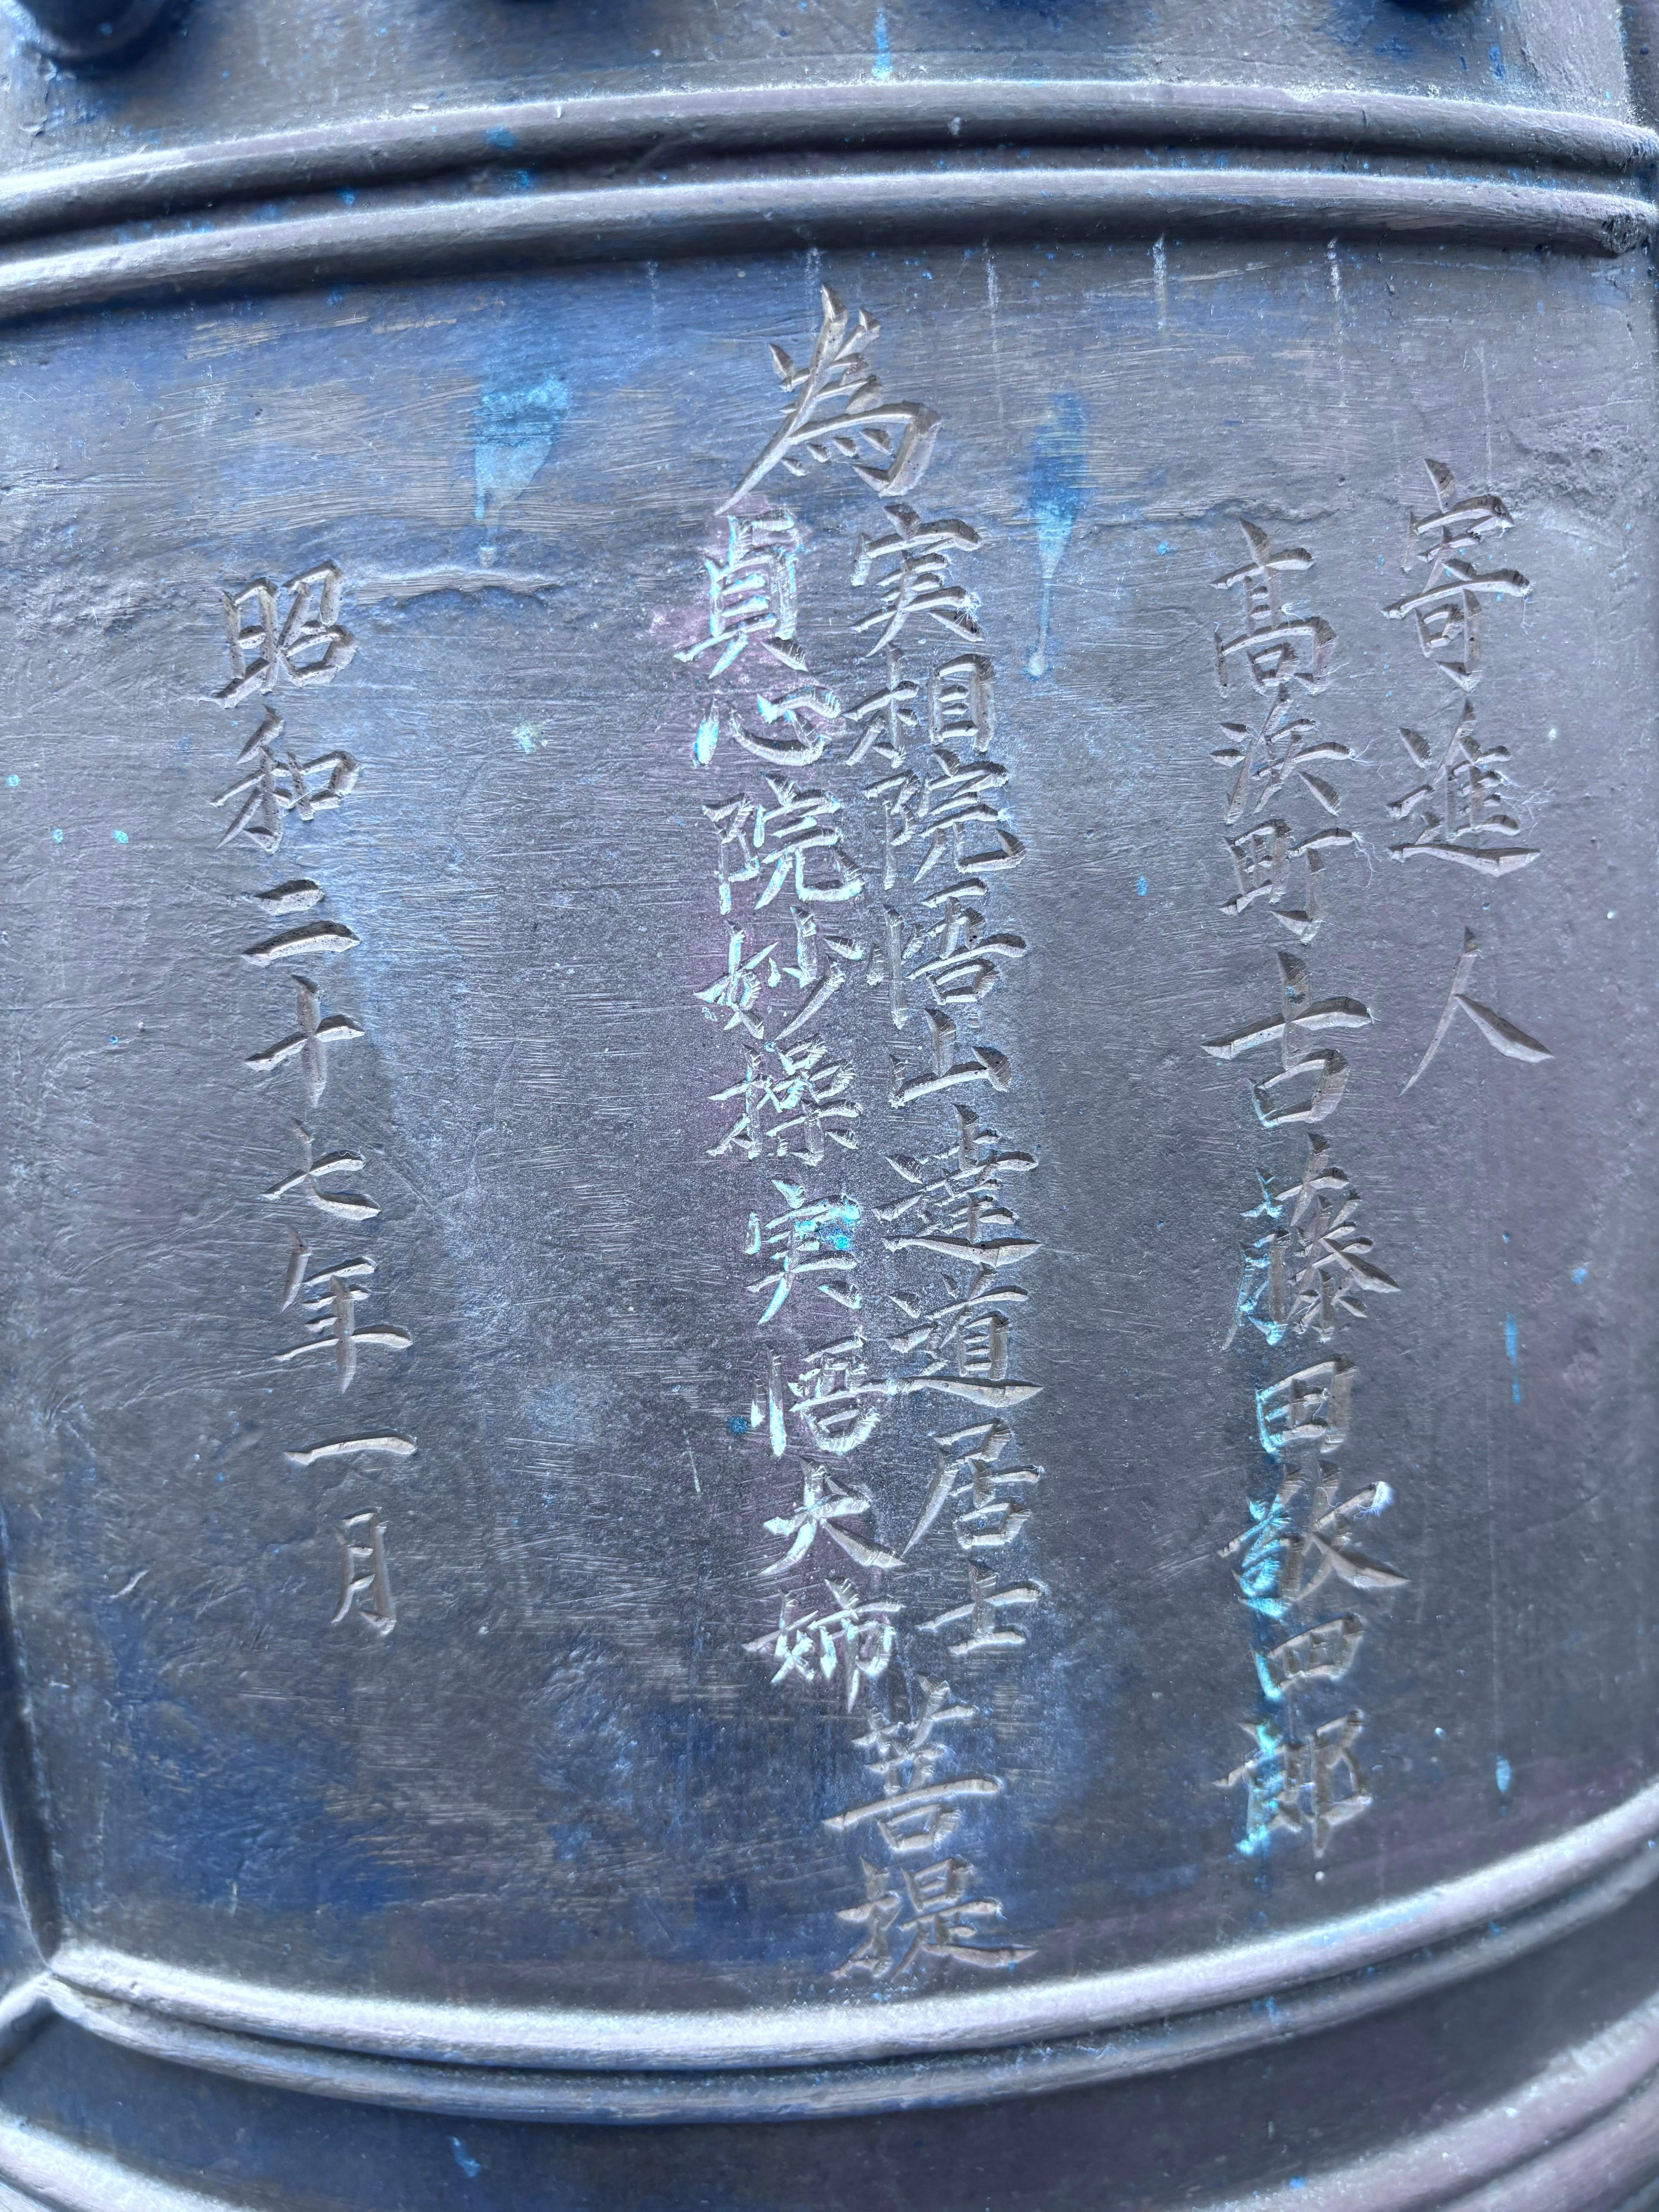 寄進人
高浜町古藤田敬四郎
為
実相院悟山達道居士
貞心院妙操実悟大姉
菩提
昭和二十七年一月